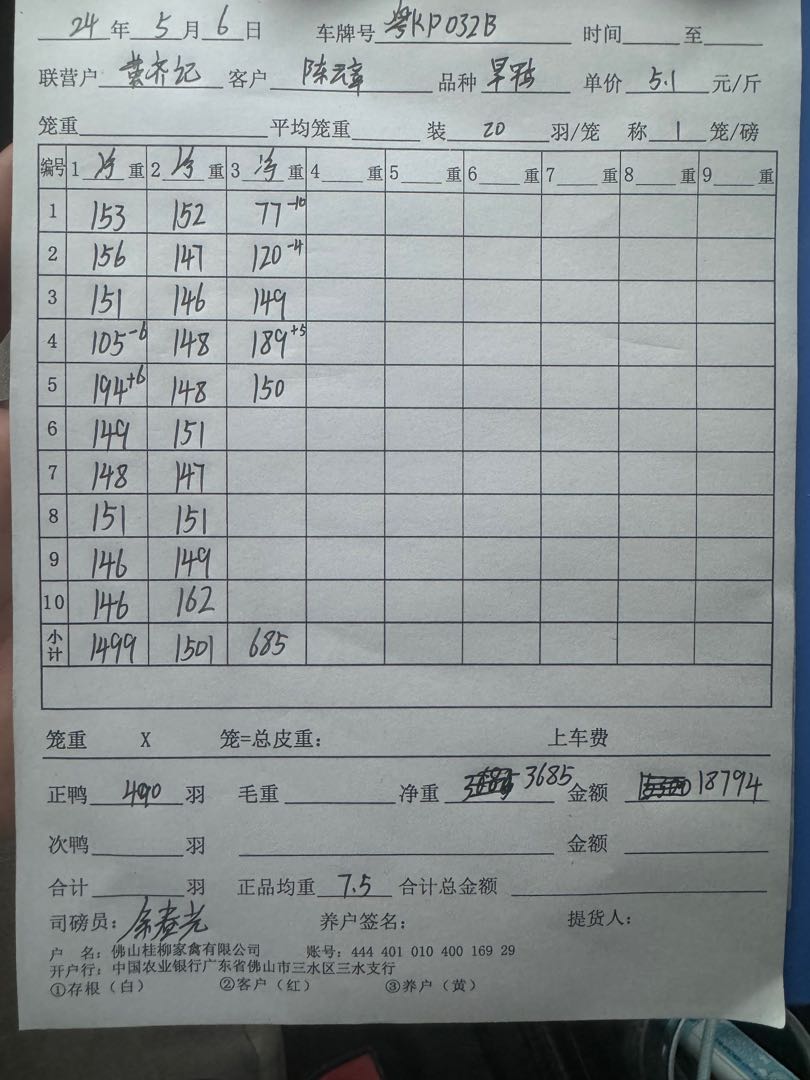 24 年 5 月 6 日 车牌号 粤KP032B 时间 至
联营户 客户 陈云章 品种 单价 5.1 元/斤
笼重 平均笼重 装 20 羽/笼 称 1 笼/磅
编号 1 净 重 2 净 重 3 净 重 4 重 5 重 6 重 7 重 8 重 9 重
1 153 152 77-10
2 156 147 120-4
3 151 146 149
4 105-6 148 189+5
5 194+6 148 150
6 149 151
7 148 147
8 151 151
9 146 149
10 146 162
小计 1499 1501 685
笼重 X 笼=总皮重: 上车费
正鸭 490 羽 毛重 净重 3685 金额 18794
次鸭 羽 金额
合计 羽 正品均重 7.5 合计总金额
司磅员: 余春光 养户签名: 提货人:
户 名: 佛山桂柳家禽有限公司 账号: 444 401 010 400 169 29
开户行: 中国农业银行广东省佛山市三水区三水支行
①存根（白） ②客户（红） ③养户（黄）